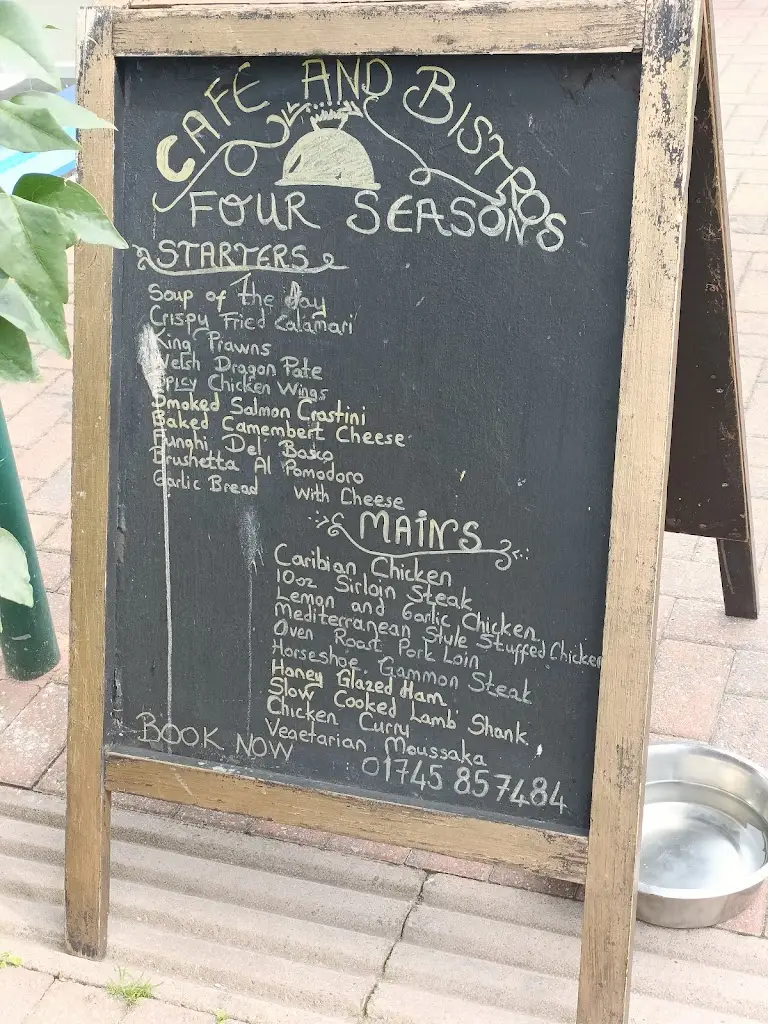 CAFE AND BISTROS
FOUR SEASONS
STARTERS
Soup of The day
Crispy Fried Calamari
King Prawns
Welsh Dragon Pate
Spicy Chicken Wings
Smoked Salmon Crostini
Baked Camembert Cheese
Funghi Del Bosco
Brushetta Al Pomodoro
Garlic Bread With Cheese
MAINS
Caribian Chicken
10oz Sirloin Steak
Lemon and Garlic Chicken
Mediterranean Style Stuffed Chicken
Oven Roast Pork Loin
Horseshoe Gammon Steak
Honey Glazed Ham
Slow Cooked Lamb Shank
Chicken Curry
Vegetarian Moussaka
BOOK NOW 01745 857484